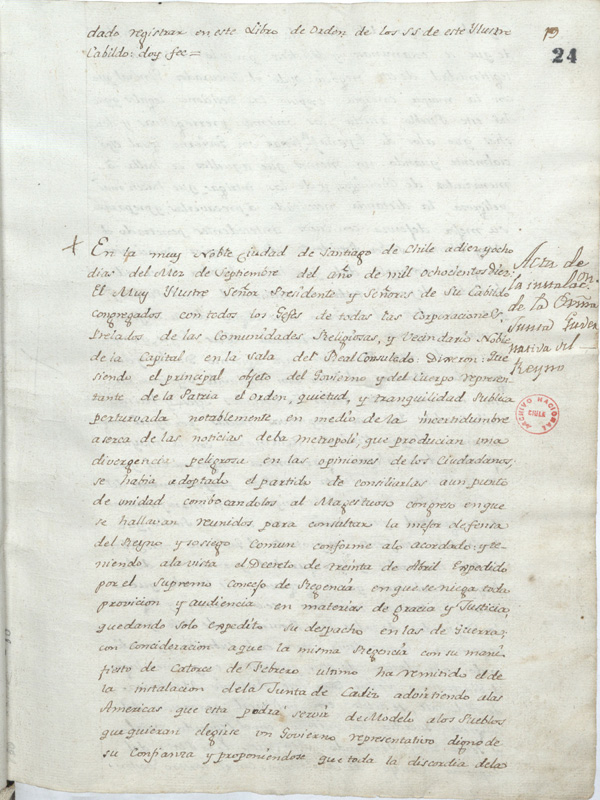 dado registrar en este Libro de Orden de los SS de este Ilustre
Cabildo: doy fee=
24
En la muy Noble Ciudad de Santiago de Chile a diez y ocho
dias del Mez de Septiembre del año de mil ochocientos Diez:
El Muy Ilustre Señor Presidente y Señores de Su Cabildo
congregados con todos los Gefes de todas las Corporaciones,
Prelados de las Comunidades Religiosas, y Vecindario Noble
de la Capital en la Sala del Real Consulado: Dixeron: que
siendo el principal objeto del Govierno y del Cuerpo represen
tante de la Patria el orden, quietud, y tranquilidad Publica
perturvada notablemente en medio de la incertidumbre
aserca de las noticias dela metropoli, que producian una
divergencia peligrosa en las opiniones de los Ciudadanos:
se havia adoptado el partido de consiliarlas a un punto
de unidad combocandolos al Magestuoso congreso en que
se hallavan reunidos para consultar la mejor defensa
del Reyno y sosiego Comun conforme alo acordado: y te-
niendo ala vista el Decreto de treinta de Abril Expedido
por el Supremo Concejo de Regencia en que se niega toda
provicion y audiencia en materias de gracia y Justicia,
quedando solo expedito su despacho en las de Guerra:
con concideracion a que la misma Regencia con su mani
fiesto de Catorce de Febrero ultimo ha remitido el de
la instalacion dela Junta de Cadiz advirtiendo alas
Americas que esta podrá servir de Modelo alos Pueblos
que quieran elegirse un Govierno representativo digno de
su Confianza y proponiendose que toda la discordia dela
Acta de
la instalac.on
de la
Junta Guber
nativa del
Reyno
ARCHIVO NACIONAL
CHILE